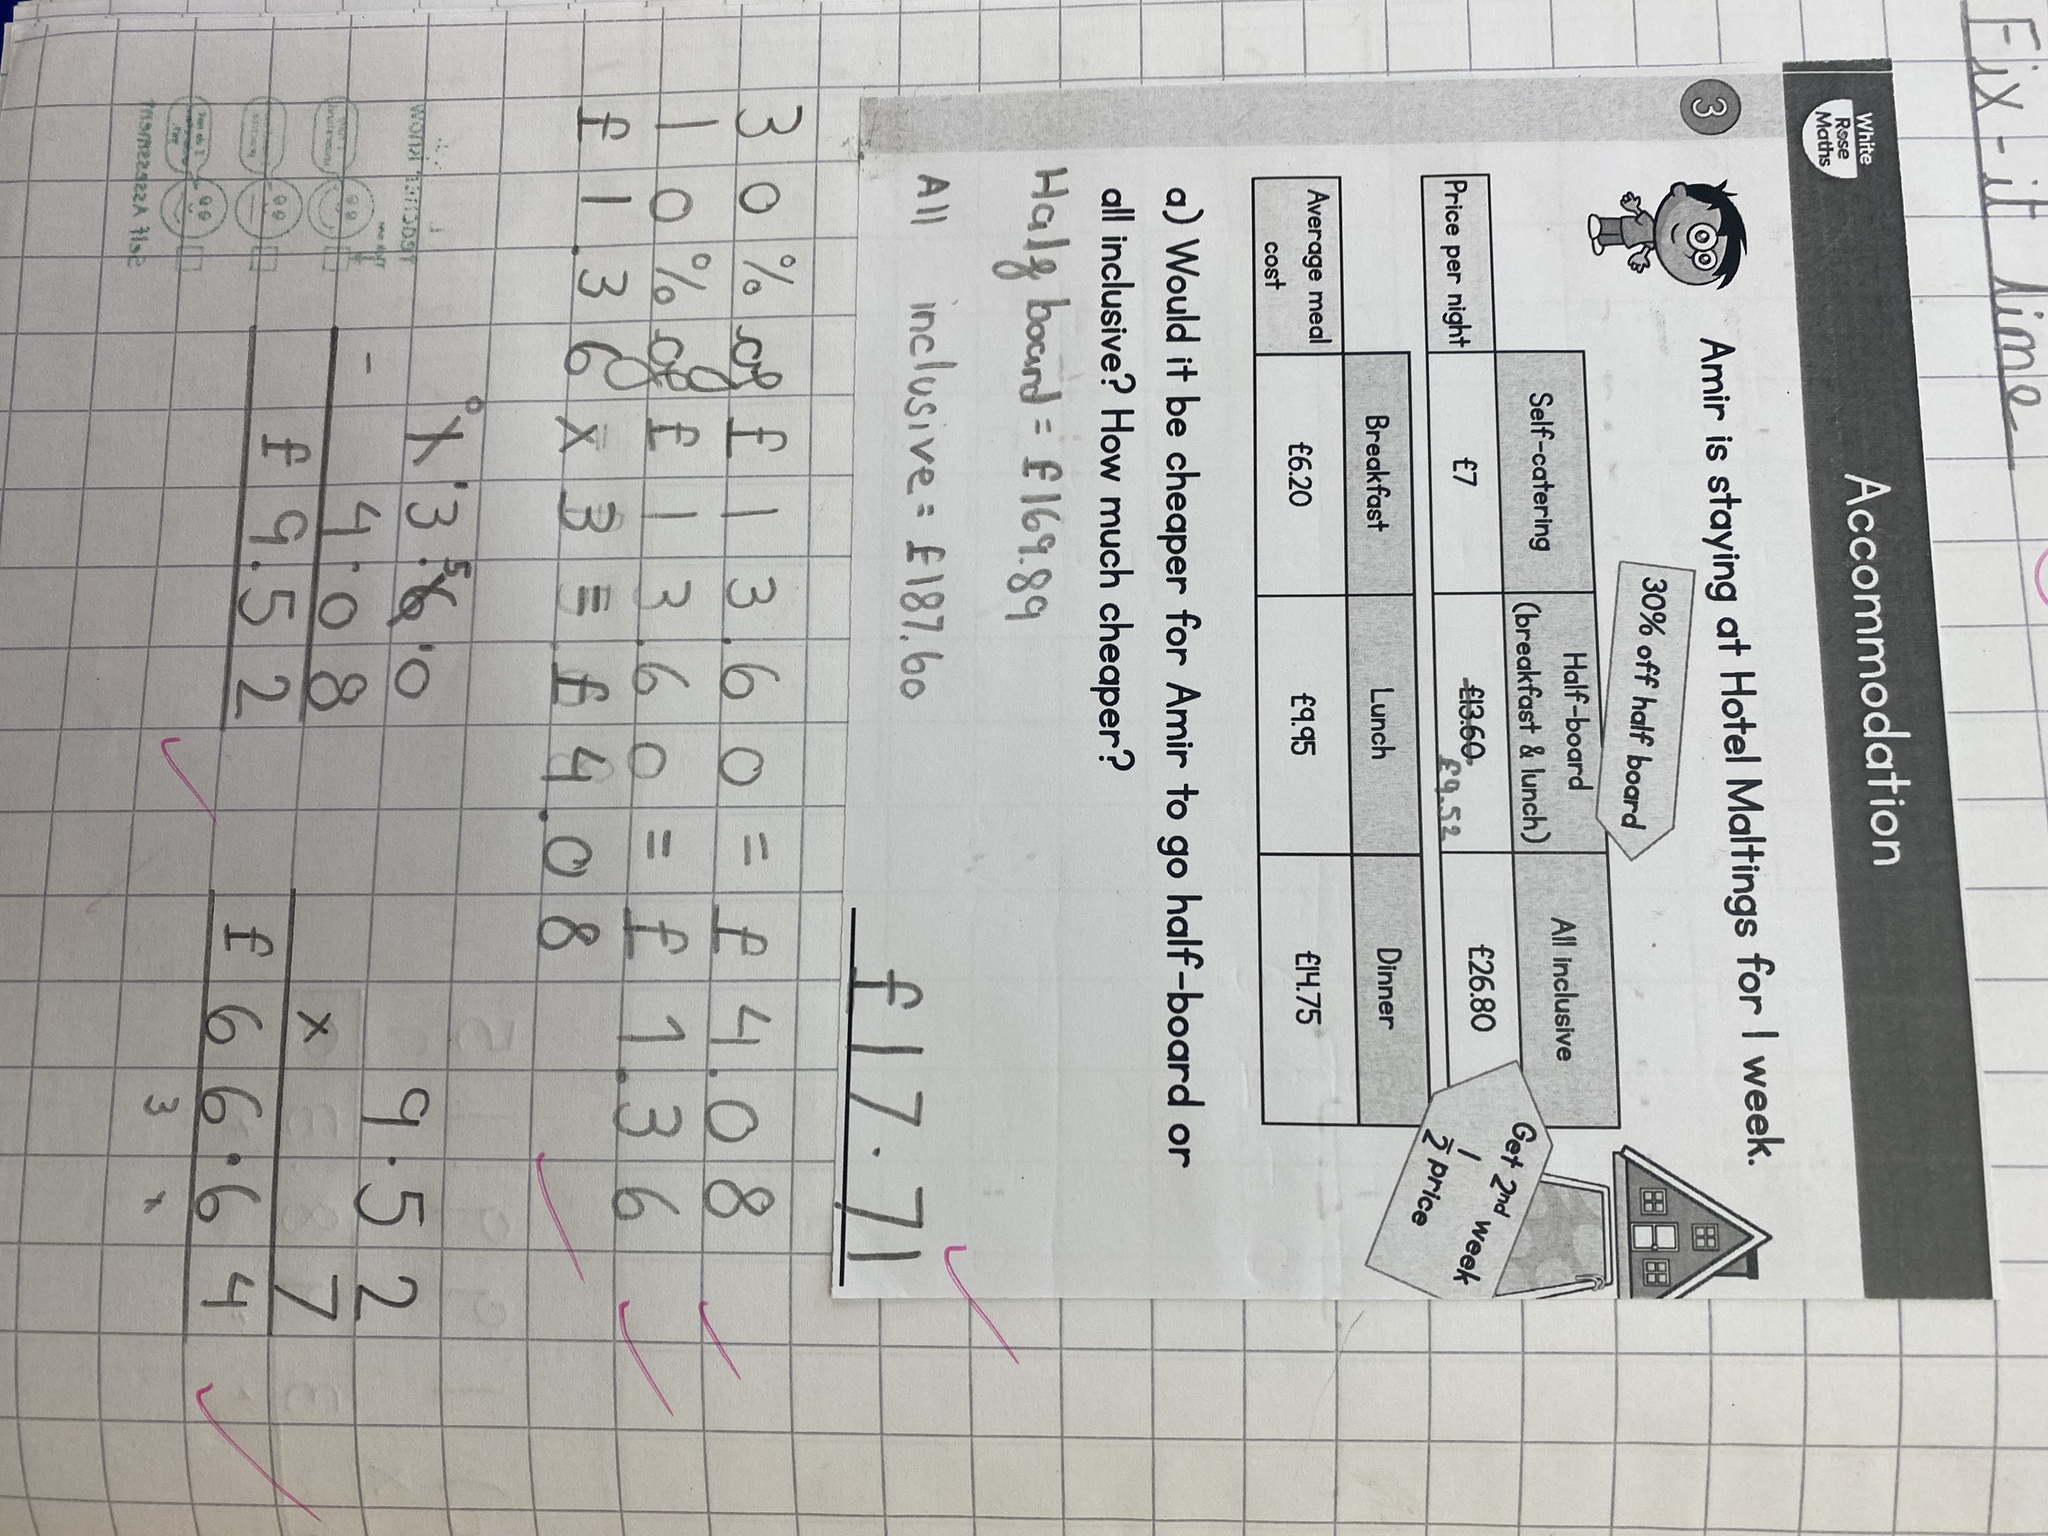 Fix-it time
White
Rose
Maths
Accommodation
3
Amir is staying at Hotel Maltings for 1 week.
30% off half board
Self-catering
Half-board
(breakfast & lunch)
All inclusive
Price per night
£7
£13.60
£9.52
£26.80
Get 2nd week
1/2 price
Breakfast
Lunch
Dinner
Average meal
cost
£6.20
£9.95
£14.75
a) Would it be cheaper for Amir to go half-board or
all inclusive? How much cheaper?
Half board = £169.89
All inclusive = £187.60
£17.71
30% of £13.60 = £4.08
10% of £13.60 = £1.36
£1.36 x 3 = £4.08
0 1 5 1
13.60
- 4.08
£9.52
9.52
x 7
£66.64
3 x